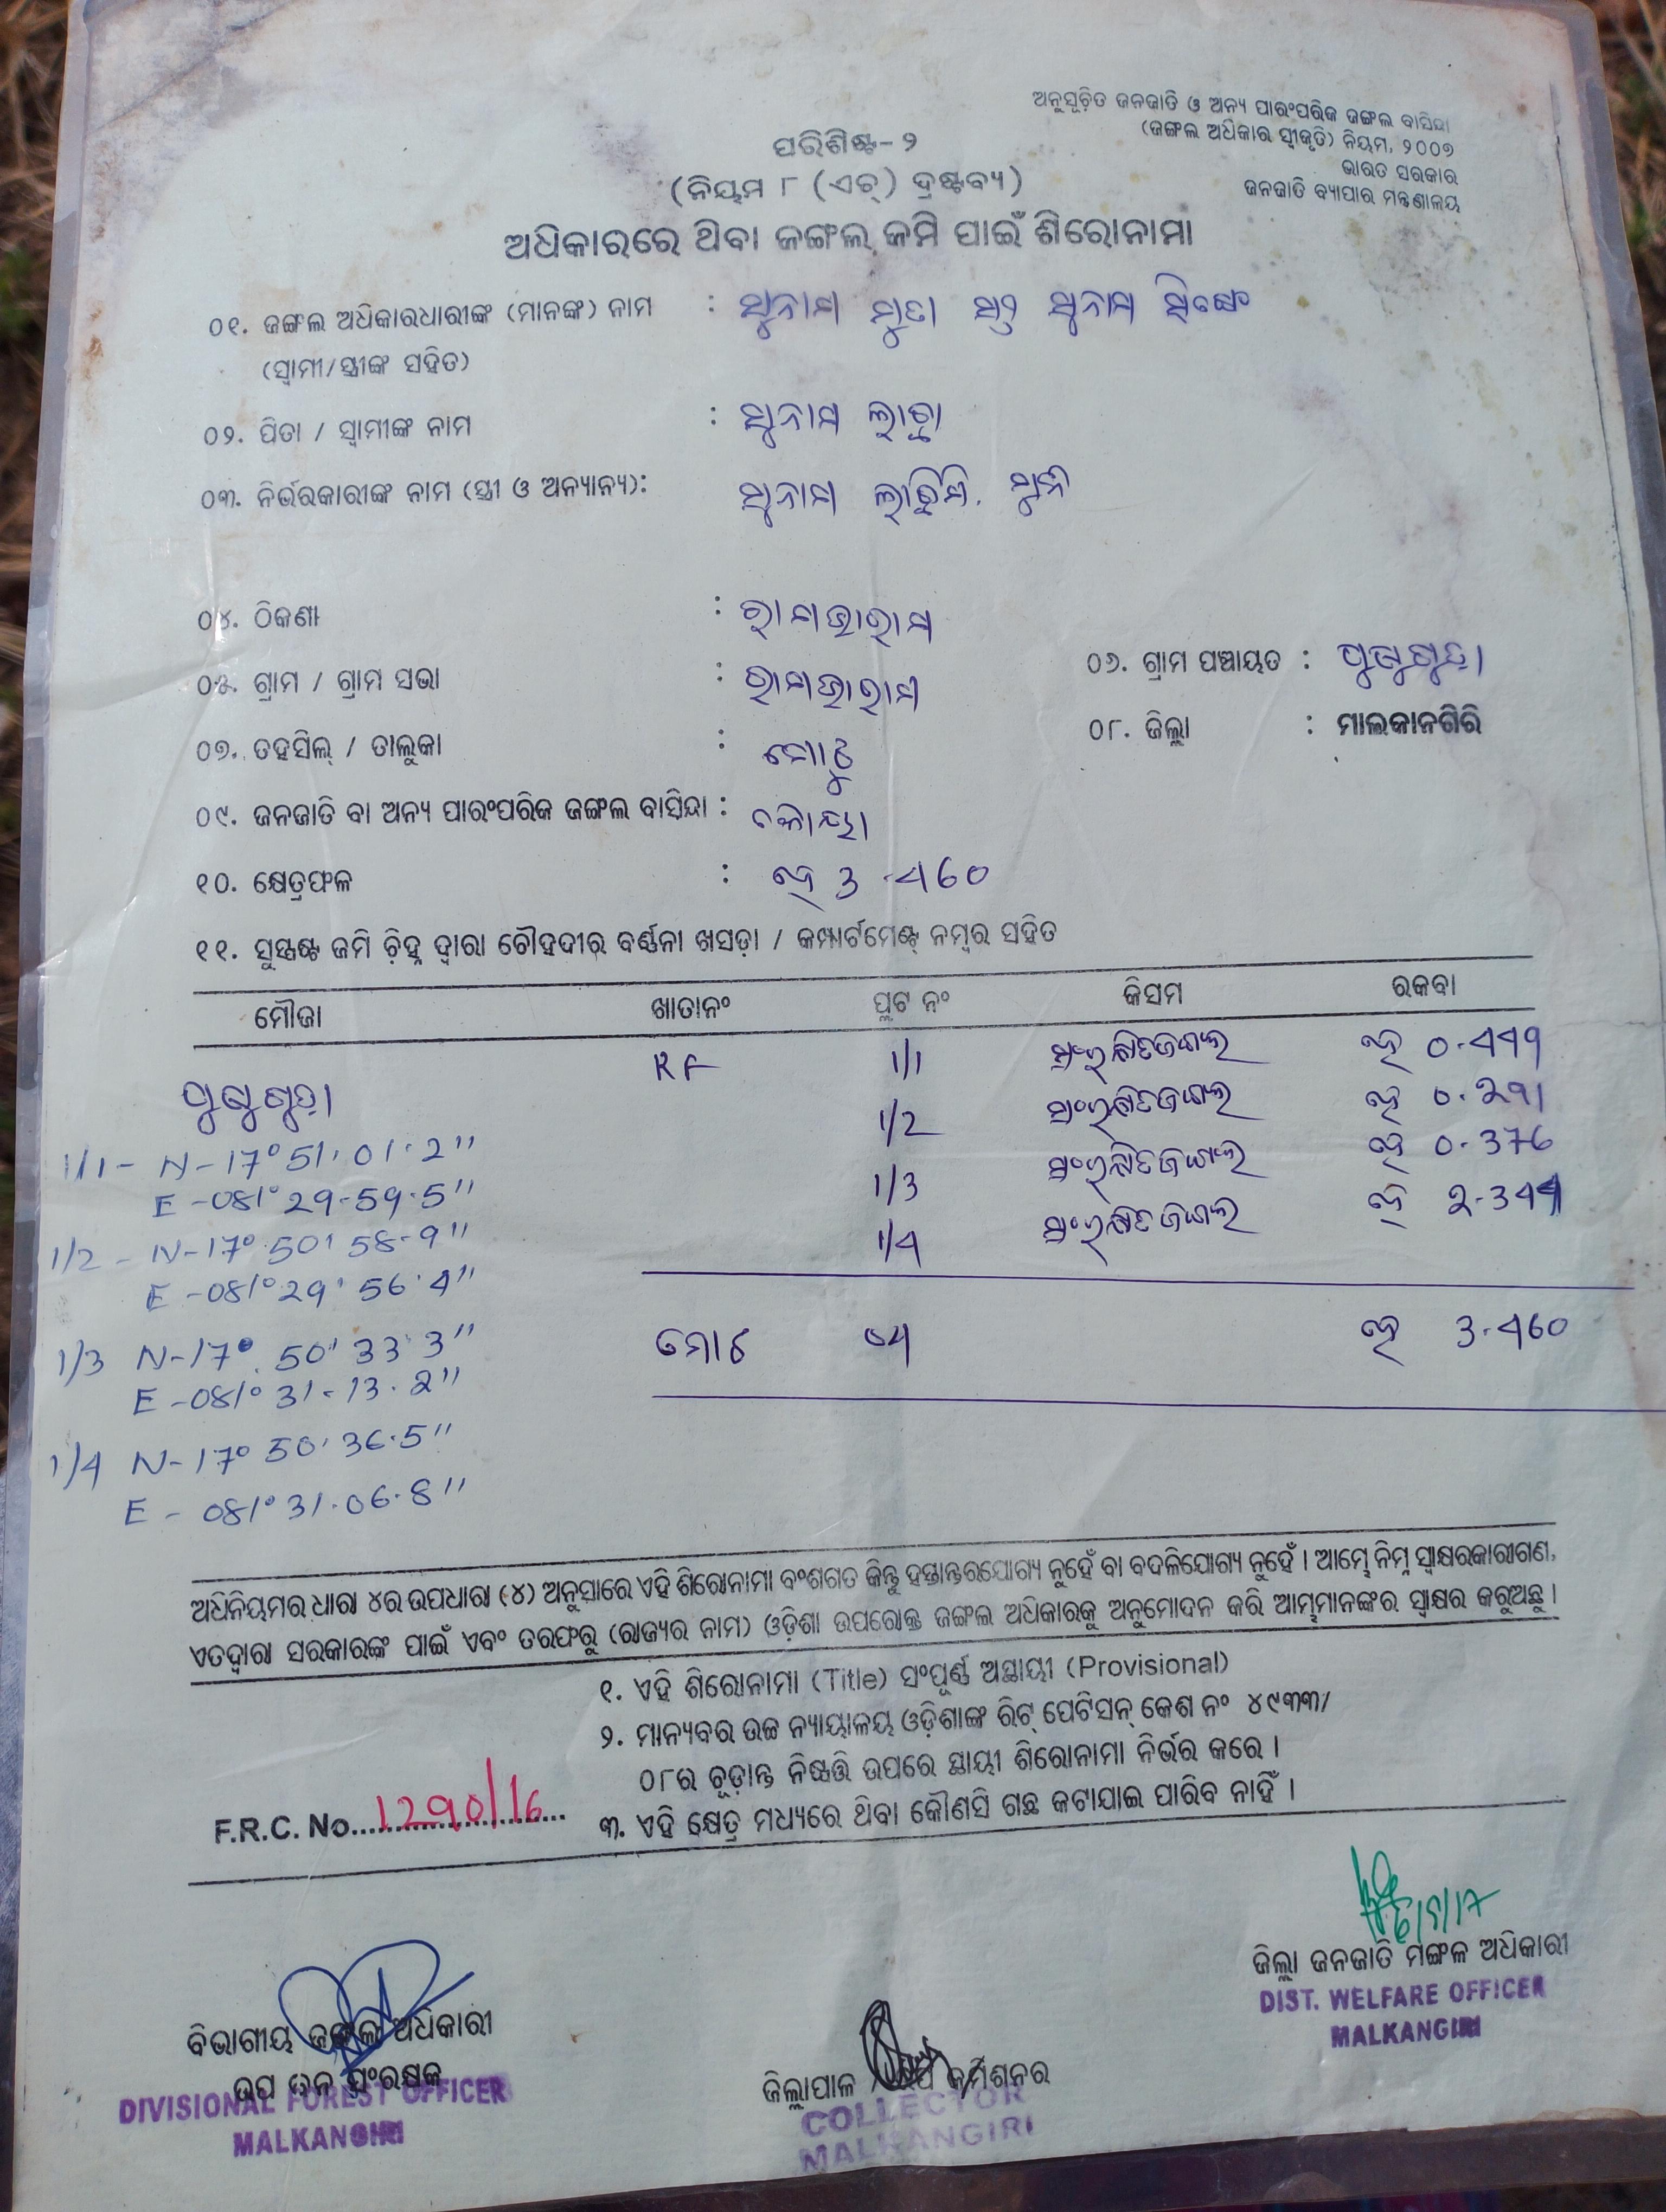 ଅନୁସୂଚିତ ଜନଜାତି ଓ ଅନ୍ୟ ପାରଂପରିକ ଜଙ୍ଗଲ ବାସିନ୍ଦା
(ଜଙ୍ଗଲ ଅଧିକାର ସ୍ୱୀକୃତି) ନିୟମ, ୨୦୦୭
ଭାରତ ସରକାର
ଜନଜାତି ବ୍ୟାପାର ମନ୍ତ୍ରଣାଳୟ
ପରିଶିଷ୍ଟ-୨
(ନିୟମ ୮ (ଏଚ୍) ଦ୍ରଷ୍ଟବ୍ୟ)
ଅଧିକାରରେ ଥିବା ଜଙ୍ଗଲ ଜମି ପାଇଁ ଶିରୋନାମା
୦୧. ଜଙ୍ଗଲ ଅଧିକାରଧାରୀଙ୍କ (ମାନଙ୍କ) ନାମ : ସୁନାମ ମୁତା ସୁନାମ
(ସ୍ୱାମୀ/ସ୍ତ୍ରୀଙ୍କ ସହିତ)
୦୨. ପିତା / ସ୍ୱାମୀଙ୍କ ନାମ : ସୁନାମ
୦୩. ନିର୍ଭରକାରୀଙ୍କ ନାମ (ସ୍ତ୍ରୀ ଓ ଅନ୍ୟାନ୍ୟ): ସୁନାମ
୦୪. ଠିକଣା : ରାମଭାରାମ
୦୫. ଗ୍ରାମ / ଗ୍ରାମ ସଭା : ରାମଭାରାମ ୦୬. ଗ୍ରାମ ପଞ୍ଚାୟତ :
୦୭. ତହସିଲ୍ / ତାଲୁକା : ମୋଟୁ ୦୮. ଜିଲ୍ଲା : ମାଲକାନଗିରି
୦୯. ଜନଜାତି ବା ଅନ୍ୟ ପାରଂପରିକ ଜଙ୍ଗଲ ବାସିନ୍ଦା : କୋୟା
୧୦. କ୍ଷେତ୍ରଫଳ : ହେ 3.460
୧୧. ସୁସ୍ପଷ୍ଟ ଜମି ଚିହ୍ନ ଦ୍ୱାରା ଚୌହଦୀର ବର୍ଣ୍ଣନା ଖସଡ଼ା / କମ୍ପାର୍ଟମେଣ୍ଟ୍ ନମ୍ବର ସହିତ
ମୌଜା ଖାତାନଂ ପ୍ଲଟ ନଂ କିସମ ରକବା
RF 1/1 ସଂରକ୍ଷିତ ଜଙ୍ଗଲ ହେ 0.449
1/2 ସଂରକ୍ଷିତ ଜଙ୍ଗଲ ହେ 0.291
1/3 ସଂରକ୍ଷିତ ଜଙ୍ଗଲ ହେ 0.376
1/4 ସଂରକ୍ଷିତ ଜଙ୍ଗଲ ହେ 2.344
1/1 - N-17° 51' 01.2"
E-081° 29-59.5"
1/2 - N-17° 50' 58-9"
E-081° 29' 56.4"
1/3 N-17° 50' 33'3"
ମୋଟ ୦4 ହେ 3.460
E-081° 31-13.2"
1/4 N-17° 50' 36.5"
E - 081° 31.06.8"
ଅଧିନିୟମର ଧାରା ୪ର ଉପଧାରା (୪) ଅନୁସାରେ ଏହି ଶିରୋନାମା ବଂଶଗତ କିନ୍ତୁ ହସ୍ତାନ୍ତରଯୋଗ୍ୟ ନୁହେଁ ବା ବଦଳିଯୋଗ୍ୟ ନୁହେଁ । ଆମ୍ଭେ ନିମ୍ନ ସ୍ୱାକ୍ଷରକାରୀଗଣ,
ଏତଦ୍ୱାରା ସରକାରଙ୍କ ପାଇଁ ଏବଂ ତରଫରୁ (ରାଜ୍ୟର ନାମ) ଓଡ଼ିଶା ଉପରୋକ୍ତ ଜଙ୍ଗଲ ଅଧିକାରକୁ ଅନୁମୋଦନ କରି ଆମ୍ଭମାନଙ୍କର ସ୍ୱାକ୍ଷର କରୁଅଛୁ ।
୧. ଏହି ଶିରୋନାମା (Title) ସଂପୂର୍ଣ୍ଣ ଅସ୍ଥାୟୀ (Provisional)
୨. ମାନ୍ୟବର ଉଚ୍ଚ ନ୍ୟାୟାଳୟ ଓଡ଼ିଶାଙ୍କ ରିଟ୍ ପେଟିସନ୍ କେଶ ନଂ ୪୯୩୩/
୦୮ର ଚୂଡ଼ାନ୍ତ ନିଷ୍ପତ୍ତି ଉପରେ ସ୍ଥାୟୀ ଶିରୋନାମା ନିର୍ଭର କରେ ।
୩. ଏହି କ୍ଷେତ୍ର ମଧ୍ୟରେ ଥିବା କୌଣସି ଗଛ କଟାଯାଇ ପାରିବ ନାହିଁ ।
F.R.C. No. 1290/16
ଜିଲ୍ଲା ଜନଜାତି ମଙ୍ଗଳ ଅଧିକାରୀ
DIST. WELFARE OFFICER
MALKANGIRI
ବିଭାଗୀୟ ଜଙ୍ଗଲ ଅଧିକାରୀ
ଉପ ବନ ସଂରକ୍ଷକ
DIVISIONAL FOREST OFFICER
MALKANGIRI
ଜିଲ୍ଲାପାଳ / ଉପ କମିଶନର
COLLECTOR
MALKANGIRI